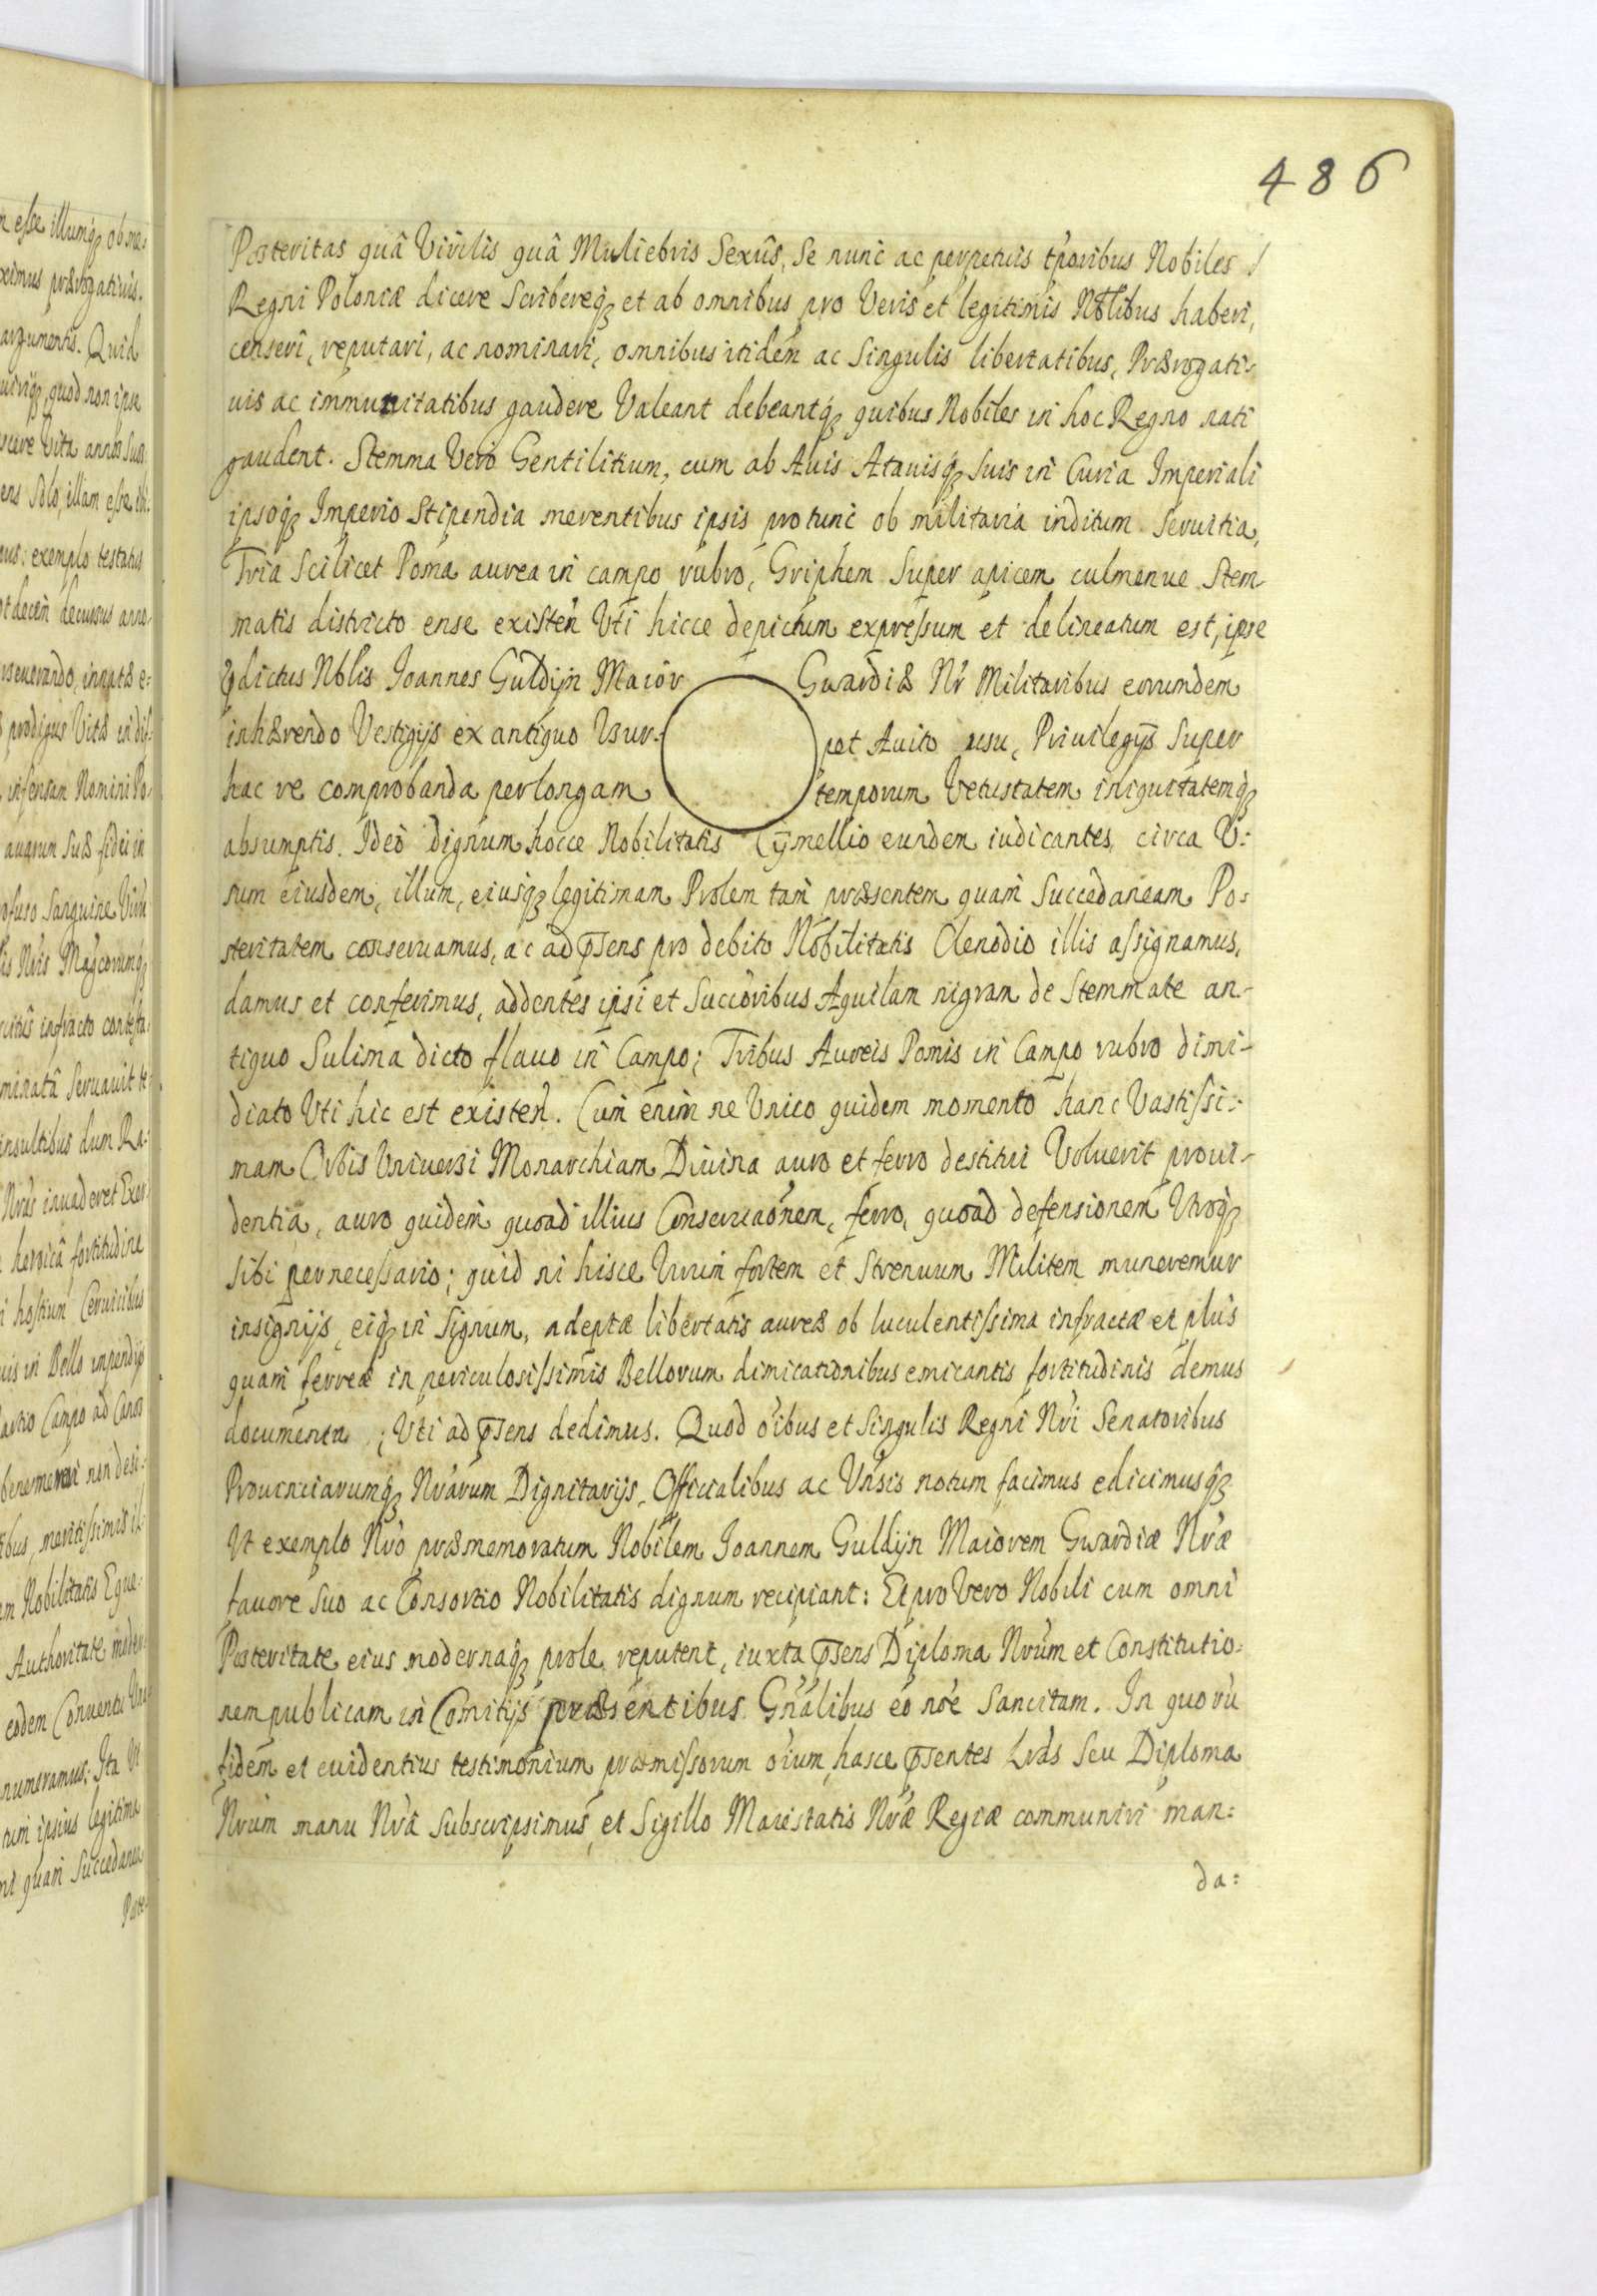 486
Posteritas quâ Virilis quâ Muliebris Sexûs, Se nunc ac perpetuis tporibus Nobiles
Regni Poloniæ dicere Scribereq̃ et ab omnibus pro Veris et legitimis Nblibus haberi,
censeri, reputari, ac nominari, omnibus itidem ac Singulis libertatibus, Prærogati-
uis ac immunitatibus gaudere Valeant debeantq̃ quibus Nobiles in hoc Regno nati
gaudent. Stemma Vero Gentilitium, cum ab Auis Atauisq̃ Suis in Curia Imperiali
ipsoq̃ Imperio Stipendia merentibus ipsis protunc ob militaria inditum Seruitia,
Tria Scilicet Poma aurea in campo rubro, Griphem Super apicem culmenue Stem-
matis districto ense existen̄ Vti hicce depictum expressum et delineatum est, ipse
p̄dictus Nblis Joannes Guldijn Maior Gwardiæ Nr̃ Militaribus eorundem
inhærendo Vestigijs ex antiquo Vsur- pet Auito usu, Priuilegijs Super
hac re comprobanda perlongam temporum Vetustatem iniquitatemq̃
absumptis. Ideo dignum hocce Nobilitatis Cÿmellio eundem iudicantes, circa V:
sum eiusdem, illum, eiusq̃ legitimam Prolem tam præsentem quam Succedaneam Po:
steritatem conseruamus, ac ad p̄sens pro debito Nobilitatis Clenodio illis assignamus,
damus et conferimus, addentes ipsi et Succoribus Aquilam nigram de Stemmate an-
tiquo Sulima dicto flauo in Campo; Tribus Aureis Pomis in Campo rubro dimi-
diato Vti hic est existen̄. Cum enim ne Vnico quidem momento hanc Vastissi-
mam Orbis Vniuersi Monarchiam Diuina auro et ferro destitui Voluerit proui-
dentia, auro quidem quoad illius Conseruaõnem, ferro, quoad defensionem Vtroq̃
Sibi pernecessario; quid ni hisce Virum fortem et Strenuum Militem muneremur
insignijs, eiq̃ in Signum, adeptæ libertatis aureæ ob luculentissima infractæ et plus
quam ferreæ in periculosissimis Bellorum dimicationibus emicantis fortitudinis demus
documenta; Vti ad p̄sens dedimus. Quod oibus et Singulis Regni Nri Senatoribus
Prouinciarumq̃ Nrarum Dignitarijs, Officialibus ac Vnsis notum facimus edicimusq̃
Vt exemplo Nro præmemoratum Nobilem Joannem Guldijn Maiorem Gwardiæ Nræ
fauore Suo ac Consortio Nobilitatis dignum recipiant: Et pro Vero Nobili cum omni
Posteritate eius modernaq̃ prole reputent, iuxta p̄sens Diploma Nrum et Constitutio-
nem publicam in Comitijs præsentibus Gnalibus eo noe Sancitam. In quoru
fidem et euidentius testimonium præmissorum oium, hasce p̄sentes Lras Seu Diploma
Nrum manu Nra Subscripsimus, et Sigillo Maiestatis Nræ Regiæ communiri man:
da: